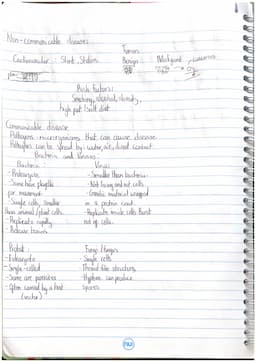 Non-communicable diseases
Tumors
Cardiovascular: Stent, Statins
Benign
Malignant → cancerous
Risk factors:
Smoking, alcohol, obesity,
high fat / salt diet
Communicable disease
Pathogens - microorganisms that can cause disease
Pathogens can be spread by: water, air, direct contact
Bacteria and Viruses:
Bacteria:
- Prokaryote
- Some have flagella
for movement
- Single cells, smaller
than animal / plant cells.
- Replicates rapidly
- Release toxins
Virus:
- Smaller than bacteria
- Not living and not cells
- Genetic material wrapped
in a protein coat
- Replicate inside cells. Burst
out of cells.
Protist:
- Eukaryote
- Single-celled
- Some are parasites
- Often carried by a host
(vector)
Fungi / Fungus
- Single cells
- Thread like structures
- Hyphae can produce
spores.